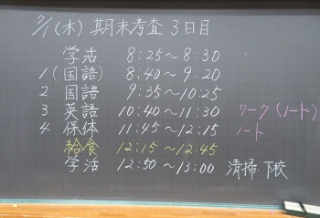 2/1(木) 期末考査3日目
学活 8:25〜8:30
1(国語) 8:40〜9:20
2 国語 9:35〜10:25
3 英語 10:40〜11:30 ワーク(ノート)
4 保体 11:45〜12:15 ノート
給食 12:15〜12:45
学活 12:50〜13:00 清掃・下校